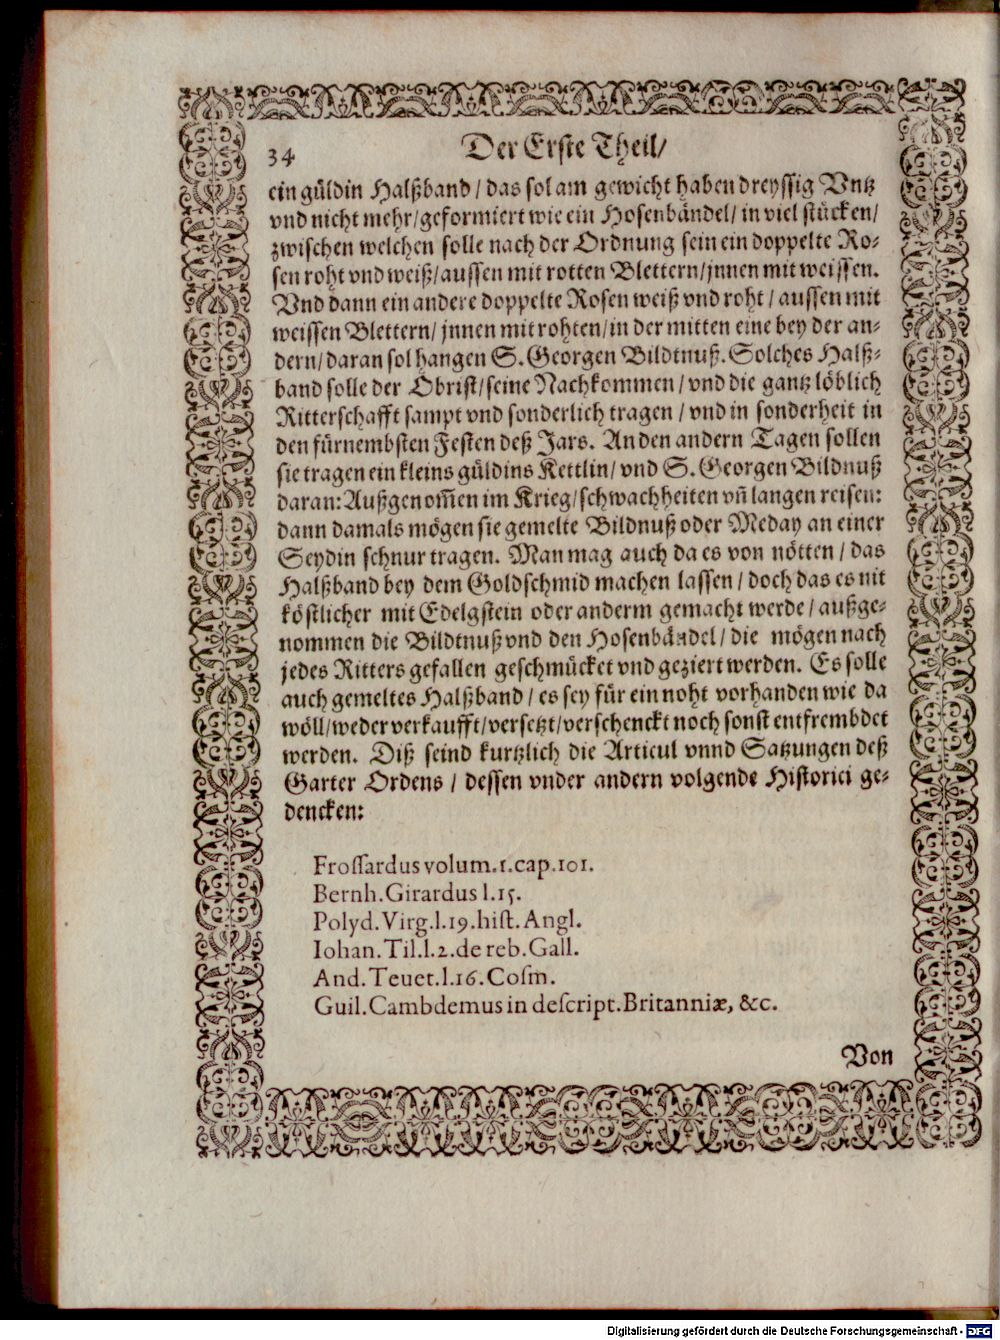 34
Der Erste Theil/
ein güldin Halßband / das sol am gewicht haben dreyssig Vntz
vnd nicht mehr/geformiert wie ein Hosenbändel/ in viel stücken/
zwischen welchen solle nach der Ordnung sein ein doppelte Ro-
sen roht vnd weiß/aussen mit rotten Blettern/jnnen mit weissen.
Vnd dann ein andere doppelte Rosen weiß vnd roht / aussen mit
weissen Blettern/ jnnen mit rohten/in der mitten eine bey der an-
dern/daran sol hangen S. Georgen Bildtnuß. Solches Halß-
band solle der Obrist/seine Nachkommen / vnd die gantz löblich
Ritterschafft sampt vnd sonderlich tragen / vnd in sonderheit in
den fürnembsten Festen deß Jars. An den andern Tagen sollen
sie tragen ein kleins güldins Kettlin/ vnd S. Georgen Bildnuß
daran: Außgenom̄en im Krieg/schwachheiten vn̄ langen reisen:
dann damals mögen sie gemelte Bildnuß oder Meday an einer
Seydin schnur tragen. Man mag auch da es von nötten / das
Halßband bey dem Goldschmid machen lassen / doch das es nit
köstlicher mit Edelgstein oder anderm gemacht werde / außge-
nommen die Bildtnuß vnd den Hosenbändel/ die mögen nach
jedes Ritters gefallen geschmücket vnd geziert werden. Es solle
auch gemeltes Halßband / es sey für ein noht vorhanden wie da
wöll/weder verkaufft/versetzt/verschenckt noch sonst entfrembdet
werden. Diß seind kurtzlich die Articul vnnd Satzungen deß
Garter Ordens / dessen vnder andern volgende Historici ge-
dencken:
Frossardus volum.1.cap.101.
Bernh.Girardus l.15.
Polyd.Virg.l.19.hist.Angl.
Iohan.Til.l.2.de reb.Gall.
And.Tevet.l.16.Cosm.
Guil.Cambdemus in descript.Britanniæ, &c.
Von
Digitalisierung gefördert durch die Deutsche Forschungsgemeinschaft - DFG